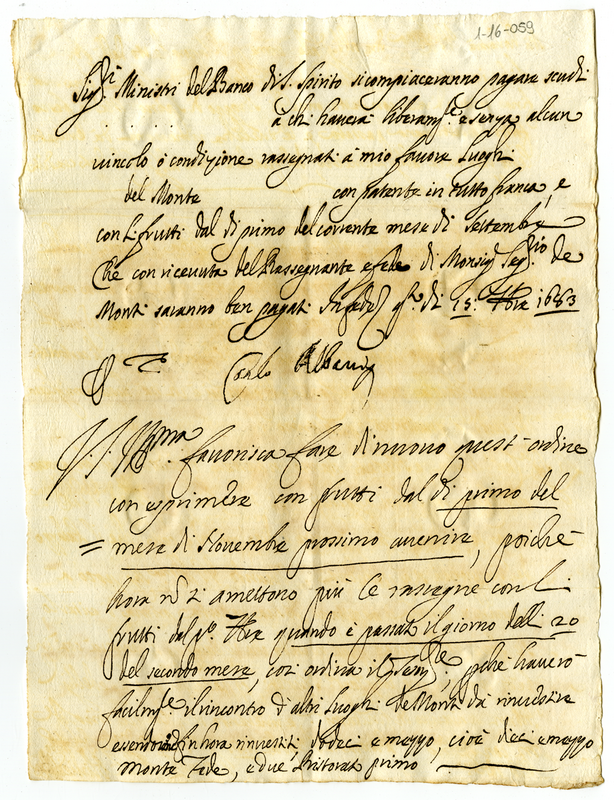 1-16-059
Sig.ri Ministri del Banco di S. Spirito si compiaceranno pagare scudi
. . . . à chi haverà liberam.te e senza alcun
vincolo ò condizione rassegnati à mio favore Luoghi
del Monte con patente in tutto franca, e
con li frutti dal dì primo del corrente mese di Settembre
che con ricevuta del Rassegnante e fede di Monsig.r Seg.rio de
Monti saranno ben pagati In fede q.to dì 15. 7bre 1683
Carlo Albani
V. S. Ill.ma favorisca fare di nuovo quest' ordine
con esprimere con frutti dal dì primo del
= mese di Novembre prossimo avvenire, poiche
hora nō si amettono più le rassegne con li
frutti dal p.o 7bre quando è passato il giorno delli 20
del secondo mese, così ordina il, pche haverò
facilm.te il rincontro d'altri Luoghi de Monti da rinvestire
essendosi finhora rinvestiti dodeci e mezzo, cioè dieci e mezzo
Monte Fede, e due Ristorati primo